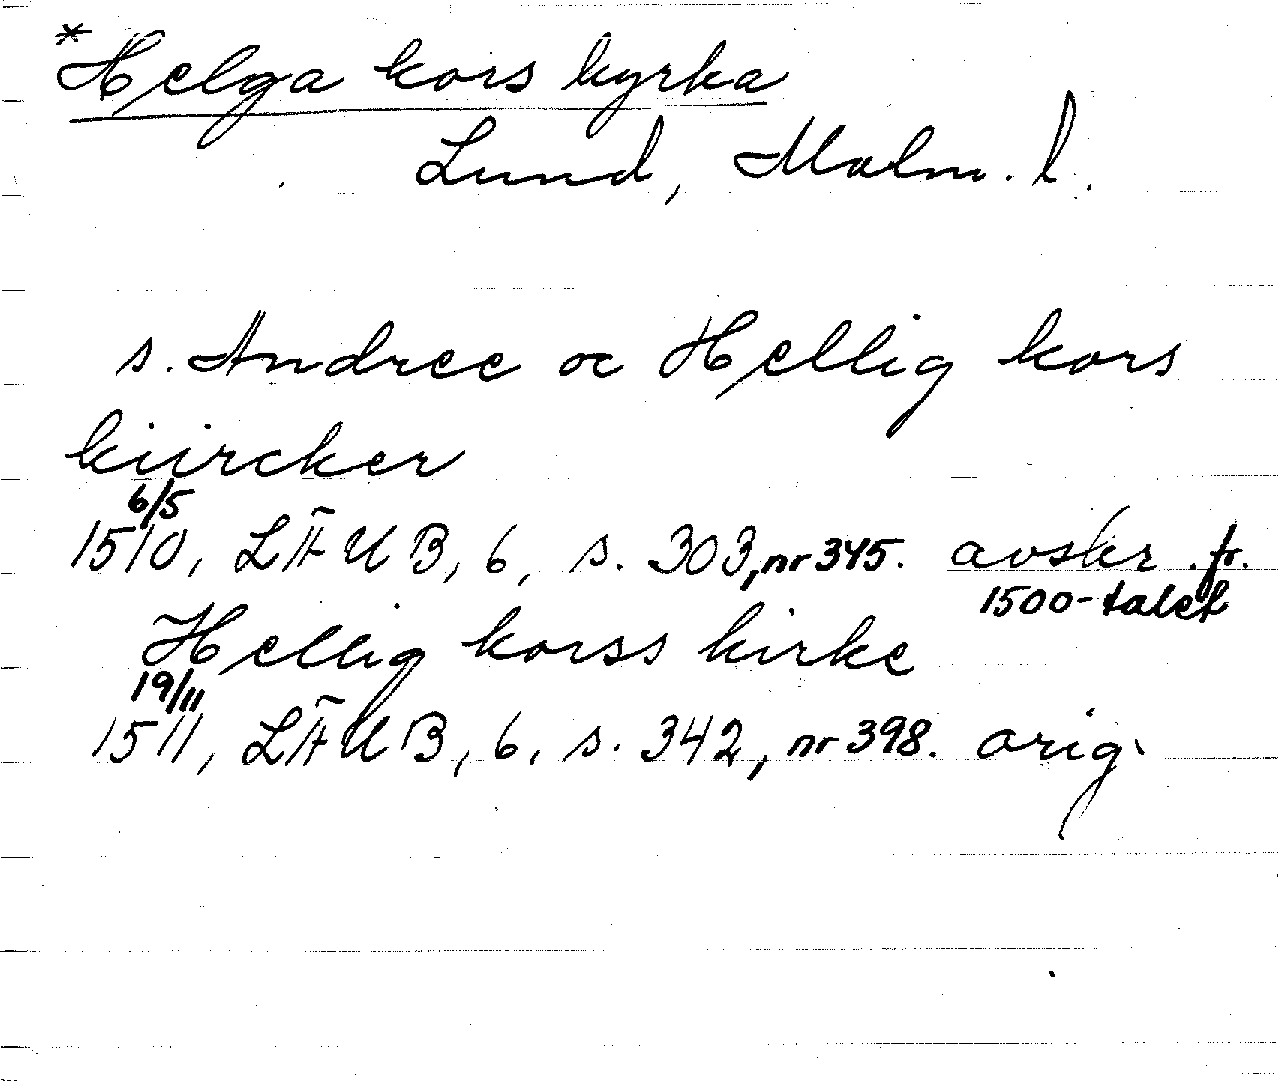 *Helga kors kyrka
Lund, Malm. l.
s. Andree oc Hellig kors
kiircker
6/5
1510, LÄUB, 6, s. 303, nr 345. avskr. fr.
1500-talet
Hellig korss kirke
19/11
1511, LÄUB, 6, s. 342, nr 398. orig.